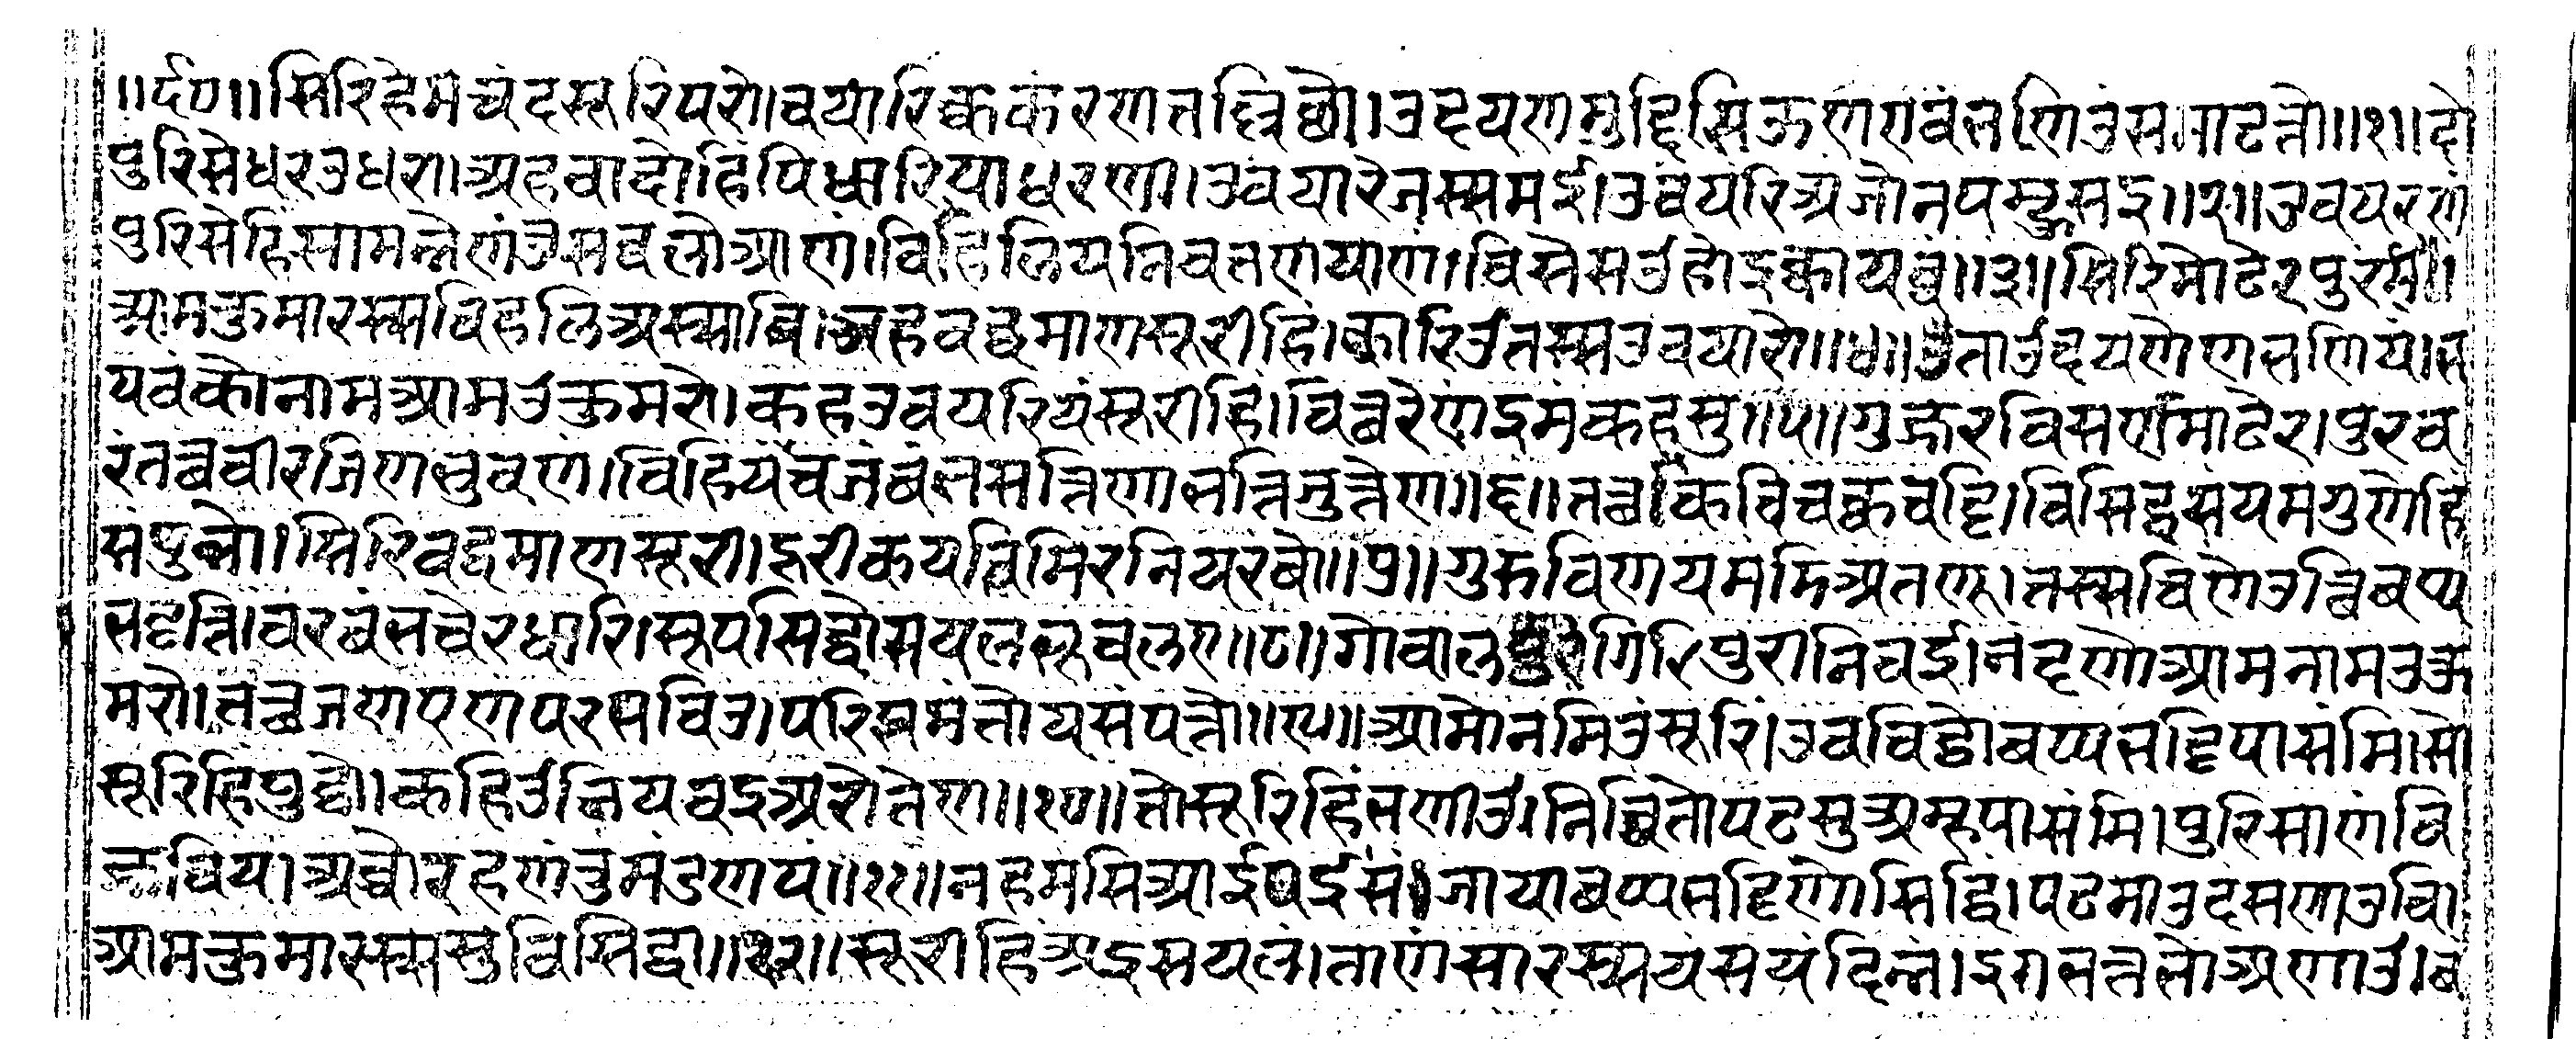 ॥ र्द० ॥ सिरिहेमचंदसूरिपरो। वयारिक्ककरणतल्लिछो। उदयणमुद्दिसिऊण एवं भणिउं समाढत्तो ॥ १ ॥ दो
पुरिसे धरउ धरा। अहवा दोहिं पि धारिया धरणी। उवयारे जस्स मई। उवयरिअं जो न पम्हुसइ ॥ २ ॥ उवयरण
पुरिसेहिं सामन्नेणं उ सव्वलोआणं। विहिलियनिवतणयाणं। विसेसउ होइ कायव्वं ॥ ३ ॥ सिरिमोढेरपुरंमी।
आमकुमारस्स विहलिअस्सावि। जह वद्धमाणसूरीहिं। कारिउ तस्स उवयारो ॥ ४ ॥ ता उदयणेण भणियं। भ
यवं को नाम आमउ कुमरो। कह उवयरियं सूरीहिं। वित्थरेण इमं कहसु ॥ ५ ॥ गुज्जरविसए मोढेर। पुरव
रं तत्थ वीरजिणभुवणं। विहियं च जं बंभसत्तिणा भत्तिजुत्तेण ॥ ६ ॥ तत्थ कविचक्कवट्टि। विसिट्ठसंयमगुणेहिं
संपुन्नो। सिरिवद्धमाणसूरी। दूरीकयतिमिरनियरंबो ॥ ७ ॥ गुरुविणयममिअतण्हा। तस्स विणेउ त्थि बप्प
भट्टित्ति। वरबंभचेरधारि। सूपसिद्धो सयलभूवलए ॥ ८ ॥ गोवालगिरिपुरानिवई। नंदणो आमनाम उ कु
मरो। तत्थ जणएण परभविउ। परिब्भमंतो य संपत्तो ॥ ९ ॥ आमो नमिउं सूरिं। उवविट्ठो बप्पभट्टिपासंमि। सो
सूरिहिं पुट्ठो। कहिउ नियवइअरो तेण ॥ १० ॥ तो सूरिहिं भणीउ। निच्चिंतो पढसु अम्ह पासंमि। पुरिसाणं वि
ज्जविया। अच्चोरहणं तुमं उणय ॥ ११ ॥ तह मंमि आई पईसं। जाया बप्पभट्टिणो सिद्धिं। पढमा उ दंसणाउ वि।
आमकुमारस्स सुविसिट्ठा ॥ १२ ॥ सूरीहिं अइसयला। ताणं सारस्सयं सयं दिन्नं। इग भत्तभोअणाउ। बं